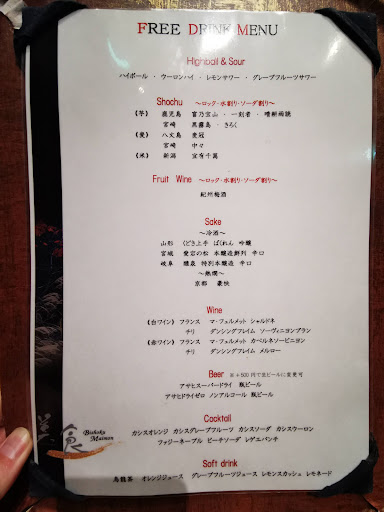 FREE DRINK MENU
Highball & Sour
ハイボール ・ ウーロンハイ ・ レモンサワー ・ グレープフルーツサワー
Shochu ～ロック・水割り・ソーダ割り～
(芋) 鹿児島 富乃宝山 ・ 一刻者 ・
宮崎 黒霧島 ・ きろく
(麦) 八丈島 麦冠
宮崎 中々
(米) 新潟 宜有千萬
Fruit Wine ～ロック・水割り・ソーダ割り～
紀州梅酒
Sake
～冷酒～
山形 くどき上手 ばくれん 吟醸
宮城 愛宕の松 本醸造鮮烈 辛口
岐阜 醴泉 特別本醸造 辛口
～熱燗～
京都 豪快
Wine
(白ワイン) フランス マ・フェルメット シャルドネ
チリ ダンシングフレイム ソーヴィニヨンブラン
(赤ワイン) フランス マ・フェルメット カベルネソービニヨン
チリ ダンシングフレイム メルロー
Beer ※＋500円で生ビールに変更可
アサヒスーパードライ 瓶ビール
アサヒドライゼロ ノンアルコール 瓶ビール
Cocktail
カシスオレンジ カシスグレープフルーツ カシスソーダ カシスウーロン
ファジーネーブル ピーチソーダ レゲエパンチ
Soft drink
烏龍茶 オレンジジュース グレープフルーツジュース レモンスカッシュ レモネード
美食
Bishoku
Maimon